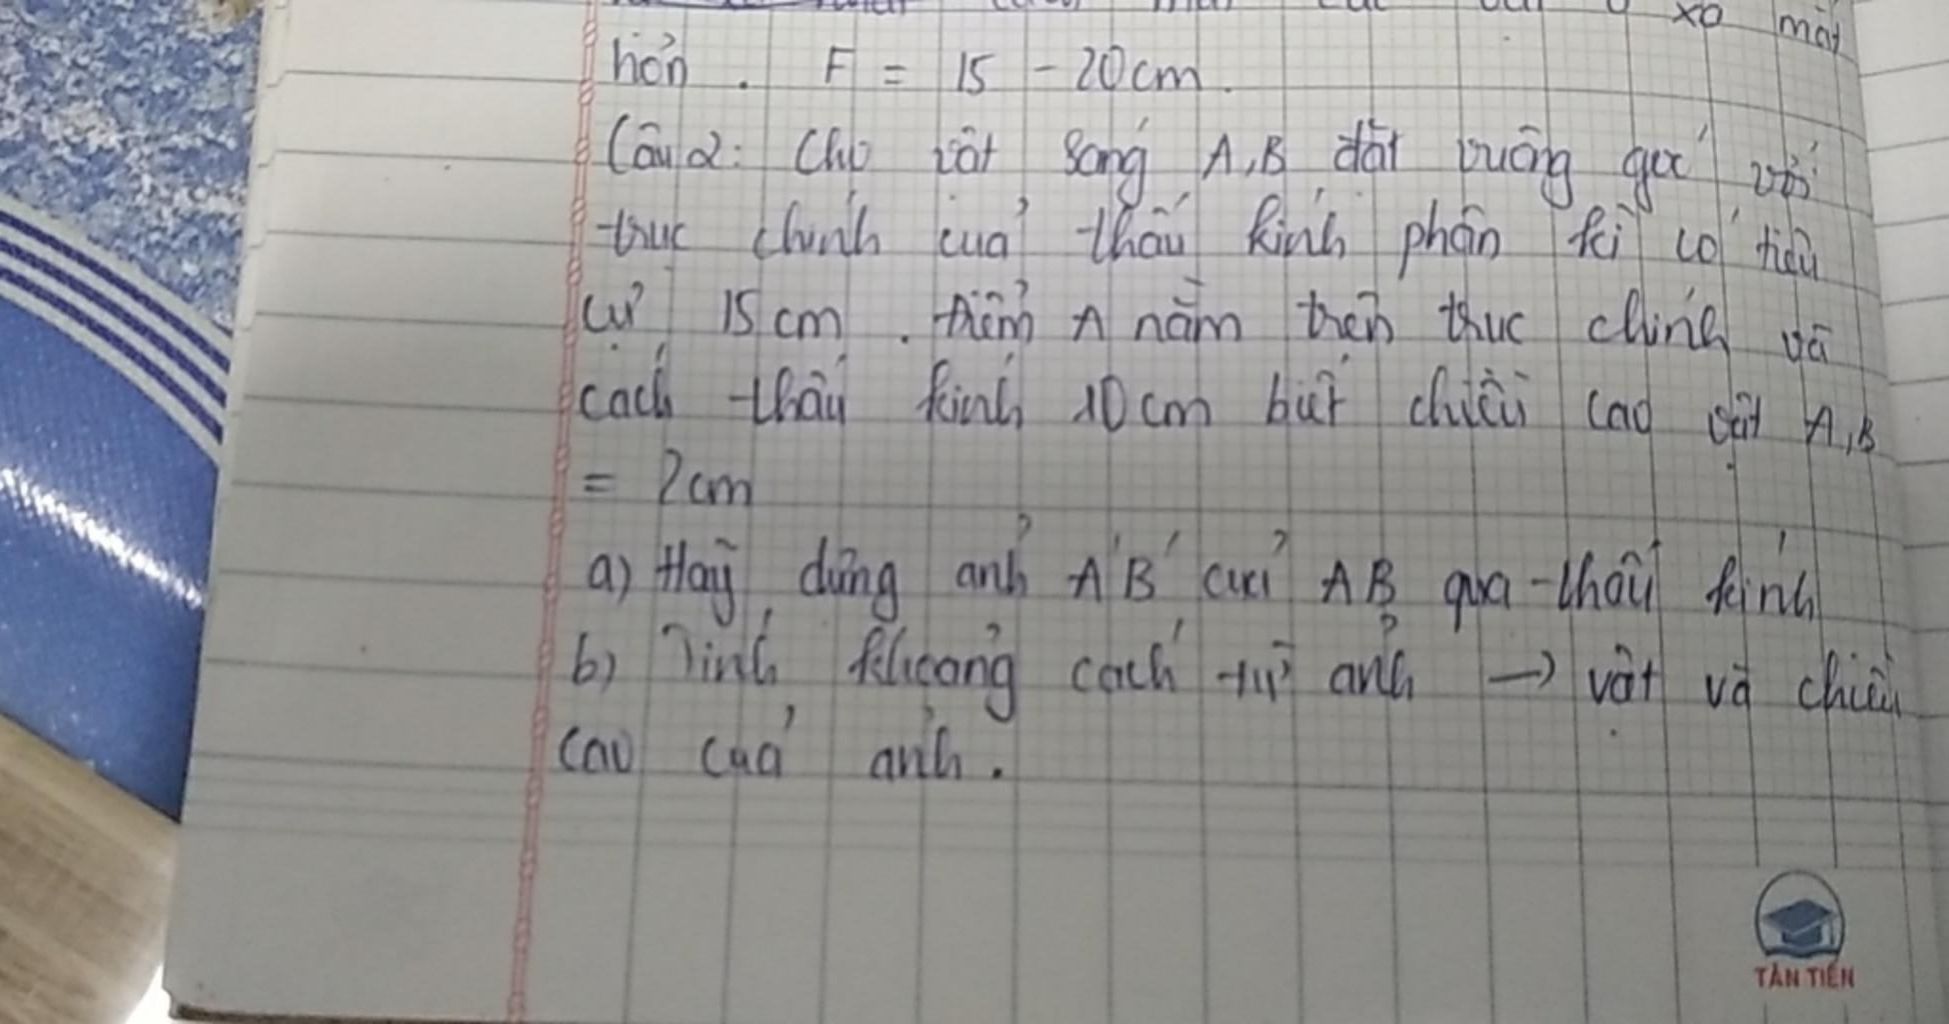 xo mắt
hỏn. F = 15 - 20cm.
Câu 2: Cho vật sáng A,B đặt vuông góc với
trục chính của thấu kính phân kì có tiêu
cự 15 cm. Điểm A nằm trên trục chính và
cách thấu kính 10 cm biết chiều cao vật A,B
= 2cm
a) Hãy dựng ảnh A'B' của AB qua thấu kính
b) Tính khoảng cách từ ảnh → vật và chiều
cao của ảnh.
TÂN TIẾN